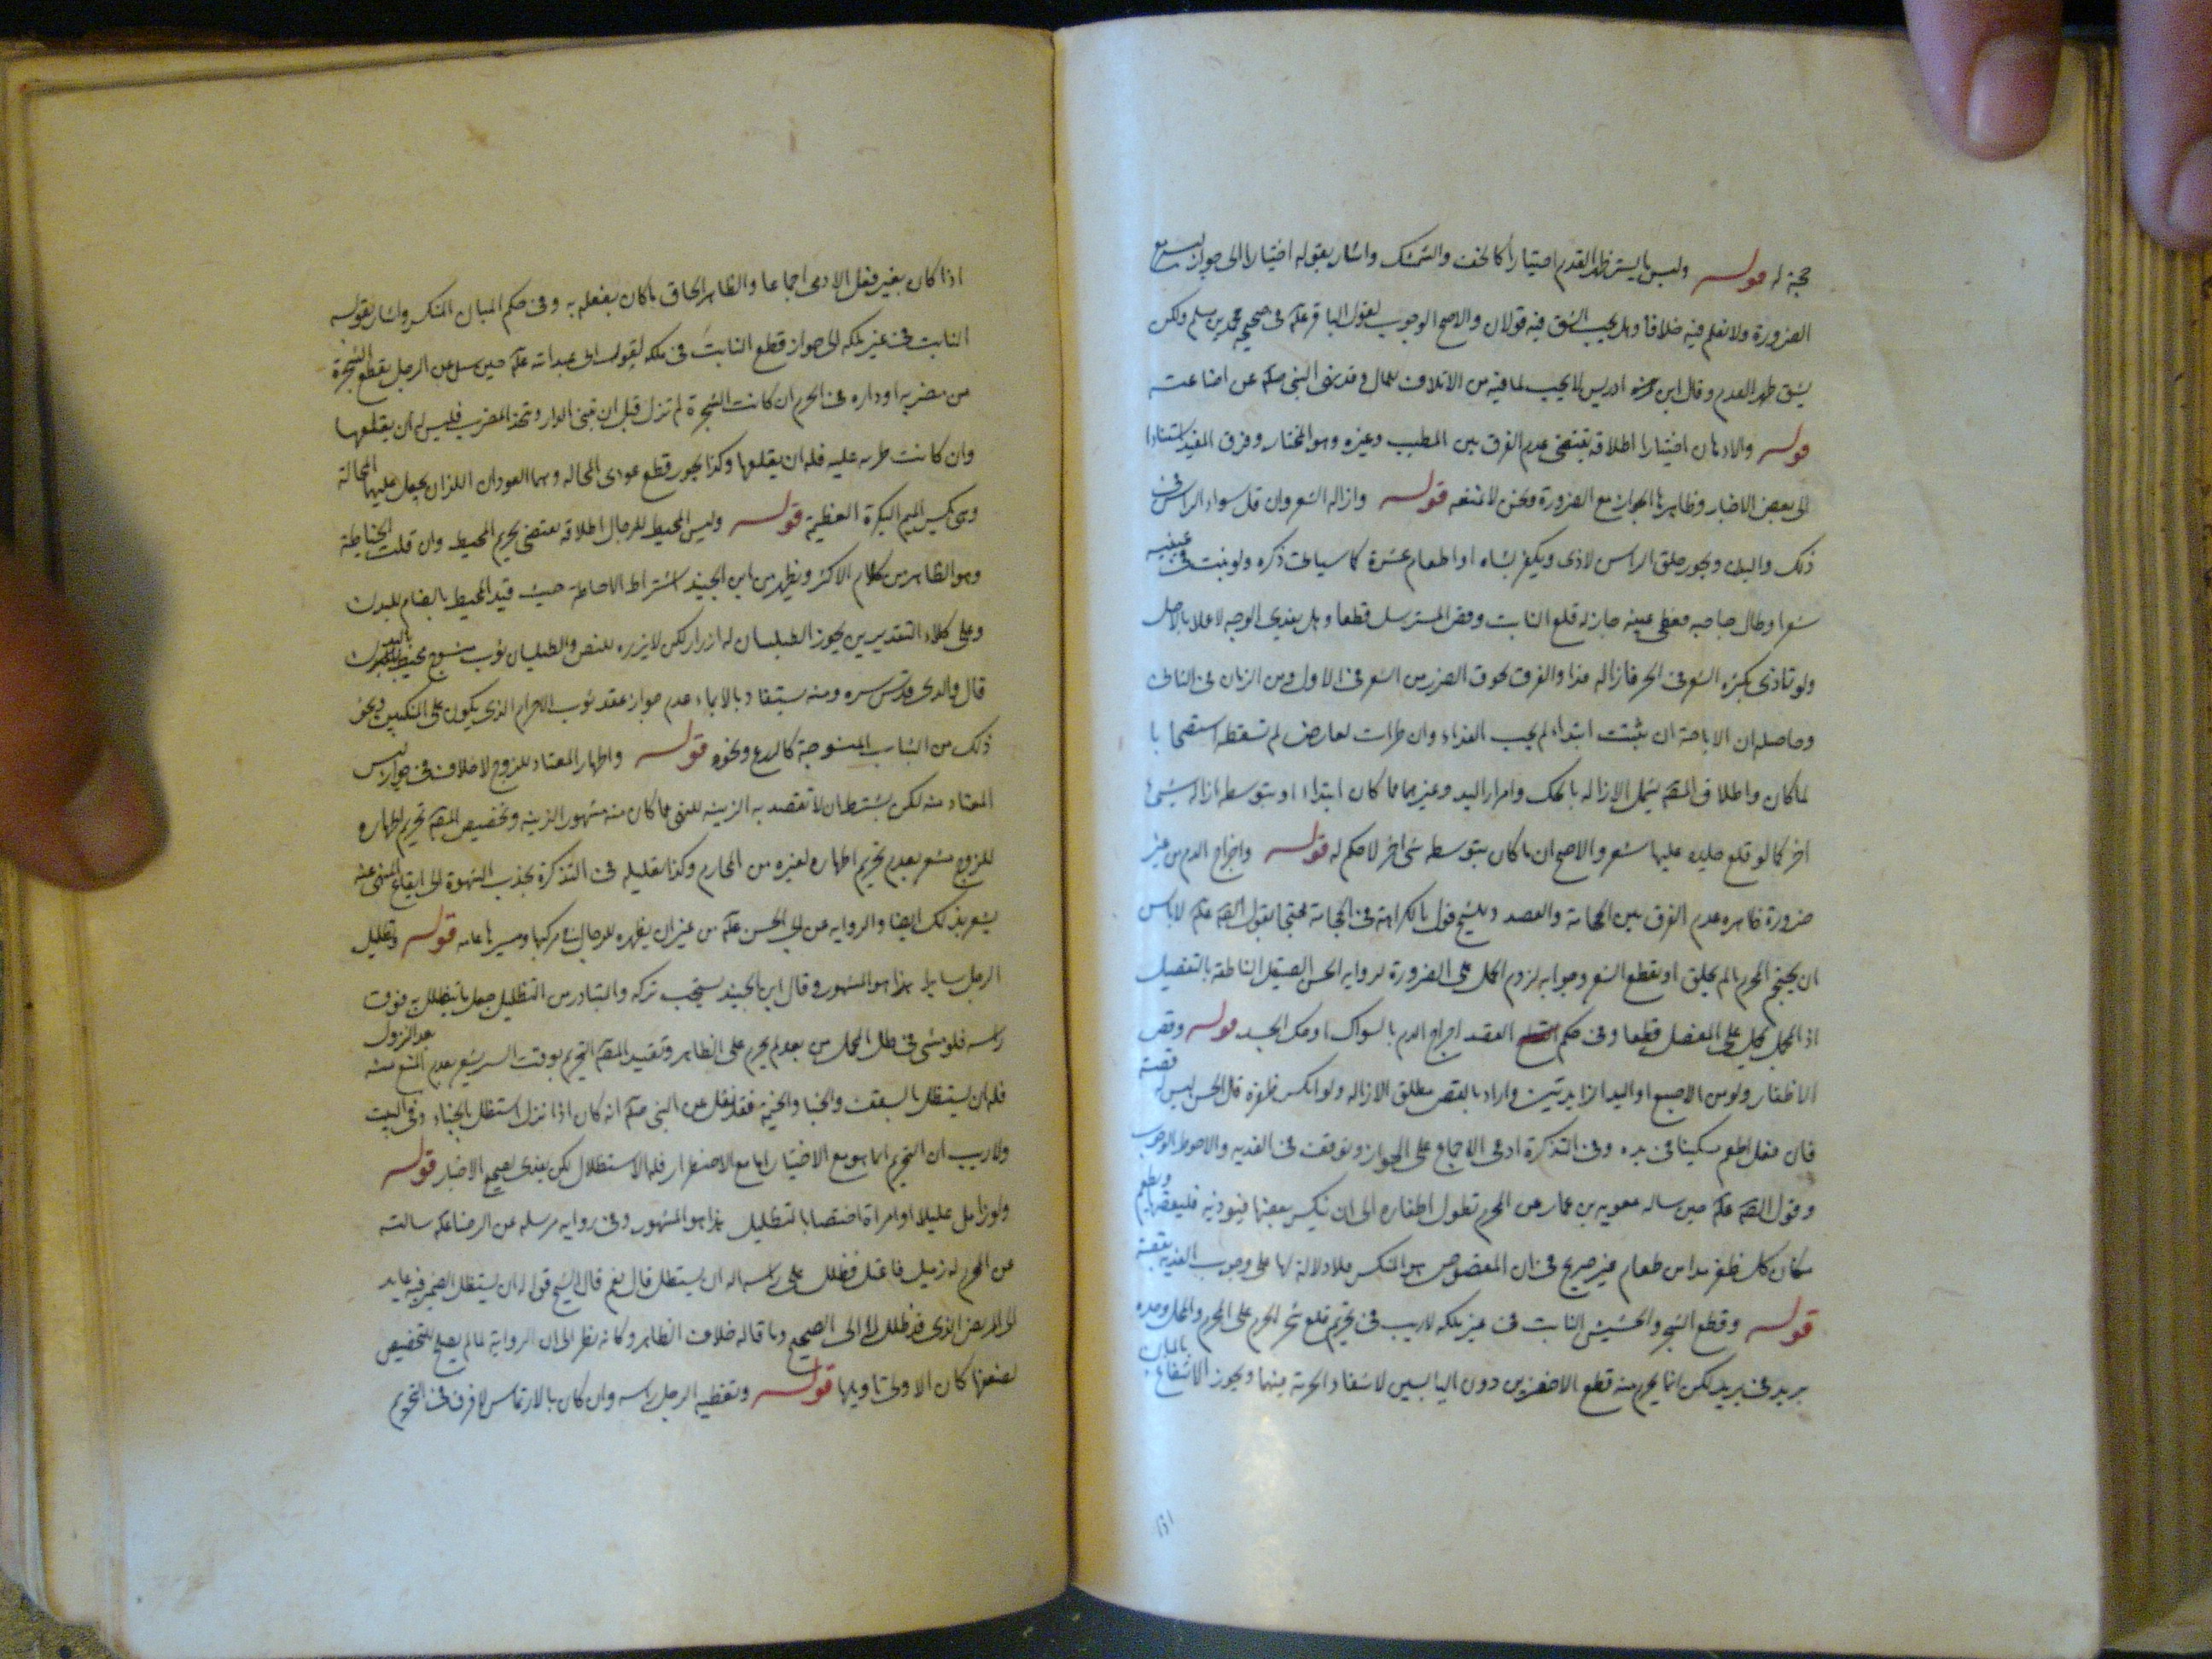 حجة له قوله ولبس ما يستر ظهر القدم اختيارا كالخف والشمشك واشار بقوله اختيارا الى جواز لبسه مع
الضرورة ولا نعلم فيه خلافا وهل يجب الشق فيه قولان والاصح الوجوب لقول الباقر علم في صحيحة محمد بن مسلم ولكن
يشق ظهر القدم وقال ابن ادريس لا يجب لما فيه من الاتلاف للمال وقد نهى النبي صلم عن اضاعته
قوله والادهان اختيارا اطلاقه يقتضي عدم الفرق بين المطيب وغيره وهو المختار وفرق المفيد استنادا
الى بعض الاخبار وظاهرها الجواز مع الضرورة ونحن لا نمنعه قوله وازالة الشعر وان قل سواء الراس في
ذلك والبدن ويجوز حلق الراس لاذى ويكفر بشاه او اطعام عشرة كما سياتي ذكره ولو نبت في عينيه
شعر او طال حاجبه فغطى عينه جاز له قلع النابت وقص المسترسل قطعا وهل يفدي الوجه لا عملا بالاصل
ولو تاذى بكثرة الشعر في الحر فازاله فدا والفرق لحوق الضرر من الشعر في الاول ومن الزمان في الثاني
وحاصله ان الاباحة ان ثبتت ابتداء لم يجب الفداء وان طرات لعارض لم تسقطه استصحابا
لما كان واطلاق المص يشمل الازاله بالحك وامرار اليد وغيرهما مما كان ابتداء او بتوسطه ازالة شيء
اخر كما لو قلع جلده عليها شعر والاصح ان ما كان بتوسطه شي اخر لا حكم له قوله واخراج الدم من غير
ضرورة ظاهره عدم الفرق بين الحجامة والفصد وللشيخ قول بالكراهة في الحجامة محتجا بقول الص علم لا باس
ان يحتجم المحرم ما لم يحلق او يقطع الشعر وجوابه لزوم الحمل على الضرورة لرواية الحسن الصيقل الناطقة بالتفصيل
اذ المجمل يحمل على المفصل قطعا وفي حكم الفصد اخراج الدم بالسواك او حك الجسد قوله وقص
الاظفار ولو من الاصبع او اليد الزايدتين واراد بالقص مطلق الازاله ولو انكسر ظفره قال الحسن ليس له قصه
فان فعل اطعم مسكينا في يده وفي التذكرة ادعى الاجماع على الجواز وتوقف في الفدية والاحوط الوجوب
وقول الص علم حين ساله معوية بن عمار عن المحرم تطول اظفاره الى ان ينكسر بعضها فيوذيه فليقصها ويطعم
مكان كل ظفر مدا من طعام غير صريح في ان المقصوص هو المنكسر فلا دلالة لها على وجوب الفدية بقصه
قوله وقطع الشجر والحشيش النابت في غير ملكه لا ريب في تحريم قلع شجر الحرم على المحرم والمحل وحده
بريد في بريد لكن انما يحرم منه قطع الاخضرين دون اليابسين لانتفاء الحرمة فيهما ويجوز الانتفاع بالمبان
اذا
اذا كان بغير فعل الادمي اجماعا والظاهر الحاق ما كان بفعله به وفي حكم المبان المنكسر واشار بقوله
النابت في غير ملكه الى جواز قطع النابت في ملكه لقول ابي عبدالله علم حين سئل عن الرجل يقطع الشجرة
من مضربه او داره في الحرم ان كانت الشجرة لم تزل قبل ان تبنى الدار وتتخذ المضرب فليس له ان يقلعها
وان كانت طرية عليه فله ان يقلعها وكذا يجوز قطع عودى المحاله وهما العودان اللذان يجعل عليهما المحالة
وهي بكسر الميم البكرة العظيمة قوله ولبس المخيط للرجال اطلاقه يقتضي تحريم المخيط وان قلت الخياطة
وهو الظاهر من كلام الاكثر ويظهر من ابن الجنيد اشتراط الاحاطة حيث قيد المخيط بالضام للبدن
وعلى كلا التقديرين يجوز الطيلسان له ازرار لكن لا يزره للنص والطيلسان ثوب منسوج محيط بالبدن
قال والدي قدس سره ومنه يستفاد بالايماء عدم جواز عقد ثوب الاحرام الذي يكون على المنكبين ونحو
ذلك من الثياب المنسوجة كالدرع ونحوه قوله واظهار المعتاد للزوج لا خلاف في جواز لبس
المعتاد منه لكن بشرط ان لا تقصد به الزينة للنهي عما كان منه مشهور الزينه وتخصيص المص تحريم اظهاره
للزوج مشعر بعدم تحريم اظهاره لغيره من المحارم وكذا تعليله في التذكرة بجذب الشهوة الى ايقاع المنهى عنه
يشعر بذلك ايضا والرواية عن ابي الحسن علم من غير ان يظهره للرجال في مركبها ومسيرها عامه قوله وتظليل
الرجل سايرا هذا هو المشهور وقال ابن الجنيد يستحب تركه والمتبادر من التظليل جعل ما يتظلل به فوق
راسه فلو مشى في ظل المحمل من بعد لم يحرم على الظاهر وتقييد المص التحريم بوقت السير يشعر بعدم المنع منه بعد النزول
فله ان يستظل بالسقف والخبا والخيمة فقد نقل عن النبي صلم انه كان اذا نزل استظل بالخباء وفي البيت
ولا ريب ان التحريم انما هو مع الاختيار اما مع الاضطرار فله الاستظلال لكن يفدى لصحيح الاخبار قوله
ولو زامل عليلا او امراة اختصا بالتظليل هذا هو المشهور وفي رواية مرسله عن الرضا علم سالته
عن المحرم له زميل فاعتل فظلل على راسه اله ان يستظل قال نعم قال الشيخ قوله له ان يستظل الضمير فيه عايد
الى المريض الذي قد ظلل لا الى الصحيح وما قاله خلاف الظاهر وكانه نظر الى ان الرواية لما لم يصلح للتخصيص
لضعفها كان الاولى تاويلها قوله وتغطية الرجل راسه وان كان بالارتماس لا فرق في التحريم